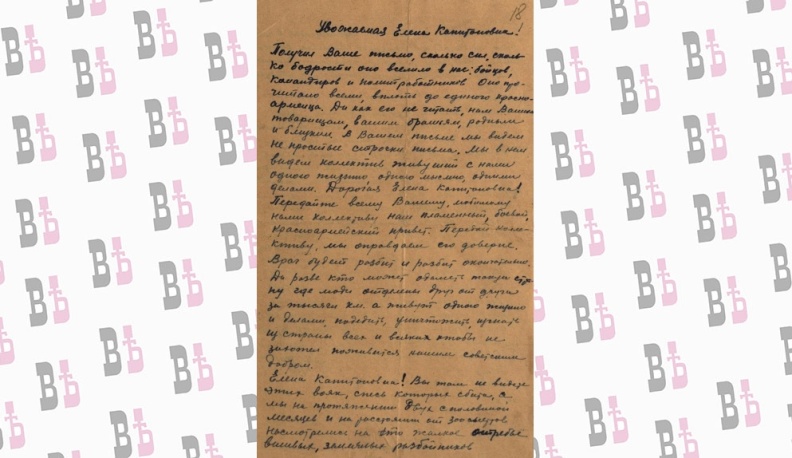 18
Уважаемая Елена Капитоновна!
Получил Ваше письмо, сколько сил, сколь-
ко бодрости оно вселило в нас: бойцов,
командиров и политработников Оно про-
читано всеми, вплоть до единого красно-
армейца. Да как его не читать нам Вашим
товарищам, вашим братьям, родным
и близким В Вашем письме мы видем
не простые строчки письма. Мы в нем
видем коллектив живущий с нами
одного жизнью одного мыслию, одними
делами. Дорогая Елена Капитоновна!
Передайте всему Вашему, любимому
нами коллективу наш пламенный, боевой,
красноармейский привет. Передай колле-
ктиву, мы оправдаем его доверие.
Враг будет разбит и разбит окончательно.
Да разве кто может одолеть такую стра-
ну где люди отделены друг от друга
за тысячи км. а живут одною жизнью
и делами, победить, уничтожить, изгнать
из страны всех и всяких чтобы не
захотел поживится нашим советским
добром.
Елена Капитоновна! Вы там не видите
этих вояк, спесь которых сбита, а
мы на протяжении двух с половиной
месяцев и на расстоянии от
насмотрелись на это жалкое отребье
вшивых, разбойников
ВѢ